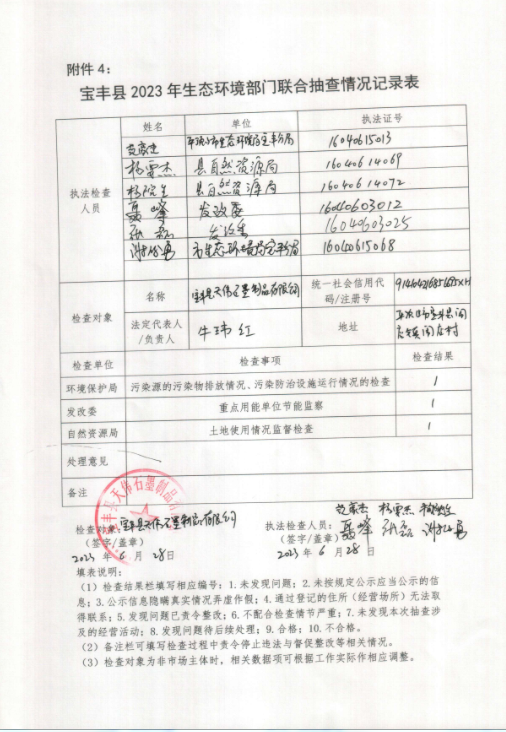 附件 4：
宝丰县 2023 年生态环境部门联合抽查情况记录表
执法检查人员
姓名 单位 执法证号
平顶山市生态环境局宝丰分局 16040615013
杨要杰 县自然资源局 16040614069
县自然资源局 16040614072
聂峰 发改委 16040603012
发改委 16040603025
市生态环境局宝丰分局 16040615068
检查对象
名称 宝丰县天伟石墨制品有限公司 统一社会信用代码/注册号
法定代表人/负责人 牛玮红 地址
检查单位 检查事项 检查结果
环境保护局 污染源的污染物排放情况、污染防治设施运行情况的检查 1
发改委 重点用能单位节能监察 1
自然资源局 土地使用情况监督检查 1
处理意见
备注
检查对象：宝丰县天伟石墨制品有限公司 执法检查人员：杨要杰 聂峰
（签字/盖章） （签字/盖章）
2023 年 6 月 28日 2023 年 6 月 28 日
填表说明：
（1）检查结果栏填写相应编号：1. 未发现问题；2. 未按规定公示应当公示的信
息；3. 公示信息隐瞒真实情况弄虚作假；4. 通过登记的住所（经营场所）无法取
得联系；5. 发现问题已责令整改；6. 不配合检查情节严重；7. 未发现本次抽查涉
及的经营活动；8. 发现问题待后续处理；9. 合格；10. 不合格。
（2）备注栏可填写检查过程中责令停止违法与督促整改等相关情况。
（3）检查对象为非市场主体时，相关数据项可根据工作实际作相应调整。